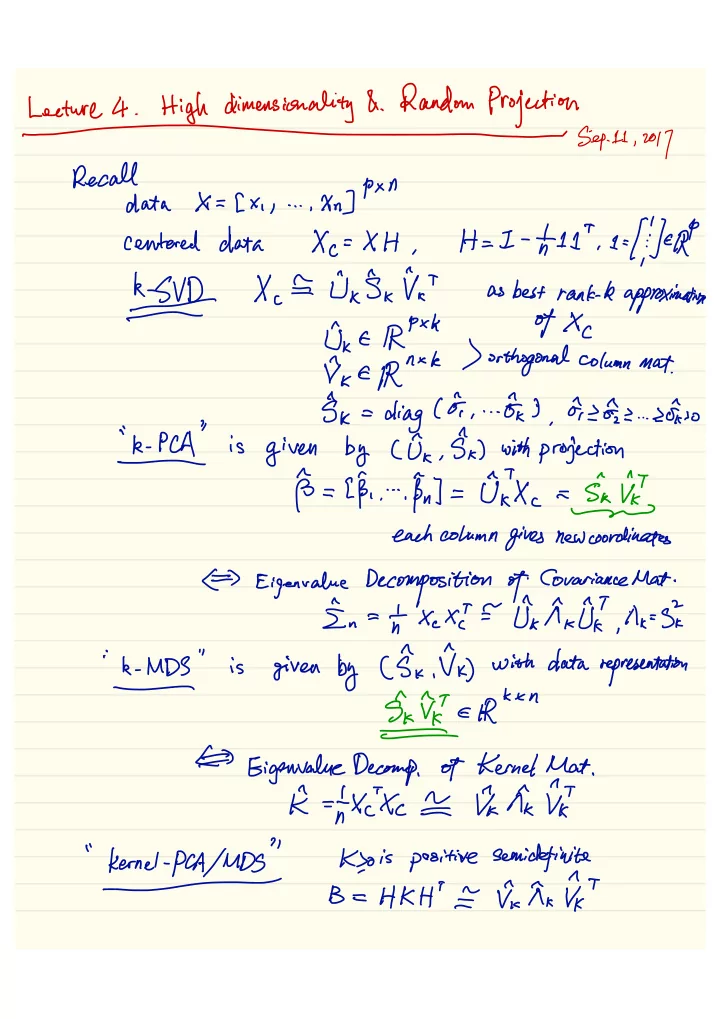 Lecture 4. High dimensionality &. Random Projection
Sep. 11, 2017
Recall
data X = [x₁, ..., xₙ]^{p×n}
centered data X_c = XH, H = I - 1/n 11ᵀ, 1 = [1 ⋮ 1] ∈ ℝ^p
k-SVD X_c ≅ Û_k Ŝ_k V̂_kᵀ as best rank-k approximation
of X_c
Û_k ∈ ℝ^{p×k}
V̂_k ∈ ℝ^{n×k} > orthogonal column mat.
Ŝ_k = diag (σ̂₁, ... σ̂_k), σ̂₁ ≥ σ̂₂ ≥ ... ≥ σ̂_k > 0
"k-PCA" is given by (Û_k, Ŝ_k) with projection
β̂ = [β̂₁, ..., β̂ₙ] = Û_kᵀ X_c = Ŝ_k V̂_kᵀ
each column gives new coordinates
⟺ Eigenvalue Decomposition of Covariance Mat.
Σ̂ₙ = 1/n X_c X_cᵀ ≅ Û_k Λ̂_k Û_kᵀ, Λ_k = S_k²
"k-MDS" is given by (Ŝ_k, V̂_k) with data representation
Ŝ_k V̂_kᵀ ∈ ℝ^{k×n}
⟺ Eigenvalue Decomp. of Kernel Mat.
K̂ = 1/n X_cᵀX_c ≅ V̂_k Λ̂_k V̂_kᵀ
"kernel-PCA/MDS" K ≥ 0 is positive semidefinite
B = HKHᵀ ≅ V̂_k Λ̂_k V̂_kᵀ